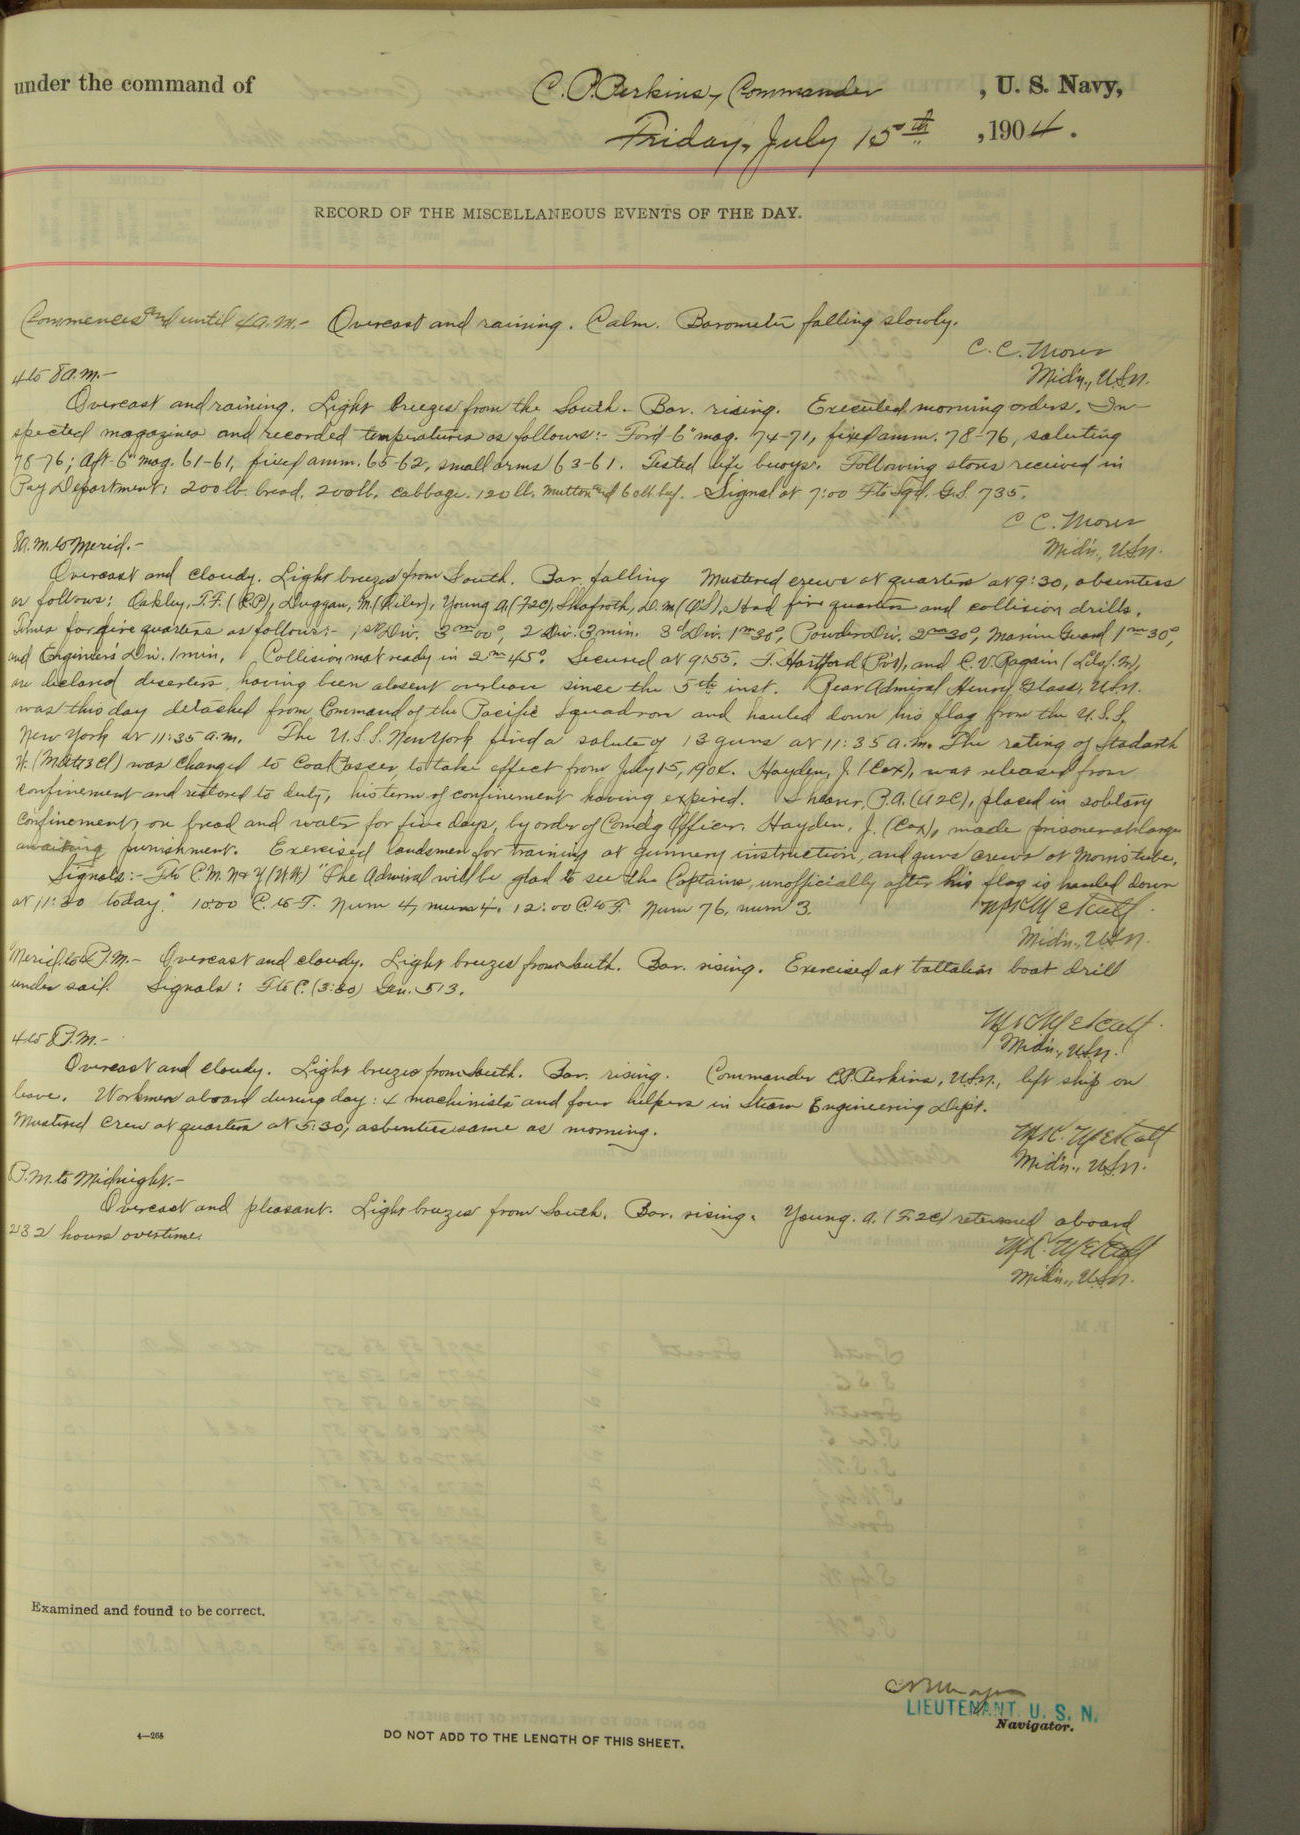 under the command of C. P. Perkins, Commander , U. S. Navy,
Friday, July 15th , 1904.
RECORD OF THE MISCELLANEOUS EVENTS OF THE DAY.
Commences and until 4 a.m.- Overcast and raining. Calm. Barometer falling slowly.
C. C. Moses
Midn., USN.
4 to 8 a.m.-
Overcast and raining. Light breezes from the South. Bar. rising. Executed morning orders. In-
spected magazines and recorded temperatures as follows:- For'd 6" mag. 74-71, fixed amm. 78-76, saluting
78-76; Aft 6" mag. 61-61, fixed amm. 65-62, small arms 63-61. Tested life buoys. Following stores received in
Pay Department: 200 lb. bread, 200 lb. cabbage, 120 lb. mutton and 60 lb. beef. Signal at 7:00 F to Sqd. G.S. 735.
C C. Moses
Midn., USN.
8 a.m. to Merid.-
Overcast and cloudy. Light breezes from South. Bar. falling Mustered crews at quarters at 9:30, absentees
as follows: Oakley, T.F. (CP), Duggan, M. (Oiler), Young A. (F2c), Shafroth, D. M (OS). Had fire quarters and collision drills.
Times for fire quarters as follows:- 1st Div. 3m 00s, 2 Div. 3 min. 3d Div. 1m 30s, Powder Div. 2m 30s, Marine Guard 1m 30s,
and Engineers Div. 1 min. Collision mat ready in 2m 45s. Secured at 9:55. F. Hartford (Pvt), and C. V. Ragain (Lds.f.M),
are declared deserters, having been absent overleave since the 5th inst. Rear Admiral Henry Glass, USN.
was this day detached from Command of the Pacific Squadron and hauled down his flag from the U.S.S.
New York at 11:35 a.m. The U.S.S. New York fired a salute of 13 guns at 11:35 a.m. The rating of
H. (Matt3cl) was changed to Coal Passer, to take effect from July 15, 1904. Hayden, J. (Cox), was released from
confinement and restored to duty, his term of confinement having expired. Shearer, P.A. (A2C), placed in solitary
confinement, on bread and water for five days, by order of Comdg Officer. Hayden, J. (Cox), made prisoner at large
awaiting punishment. Exercised landsmen for training at gunnery instruction, and guns crews at Morris tube.
Signals:- F to C.M. N & Y (WW) "The Admiral will be glad to see the Captains, unofficially after his flag is hauled down
at 11:30 today." 10:00 C. to F. Num 4, num 4. 12:00 C to F. Num 76, num 3.
M. K. Metcalf
Midn., USN.
Merid. to 4 P.M.- Overcast and cloudy. Light breezes from South. Bar. rising. Exercised at battalion boat drill
under sail. Signals: F to C. (3:30) Gen. 513.
M K Metcalf
Midn., USN.
4 to 8 P.M.-
Overcast and cloudy. Light breezes from South. Bar. rising. Commander C.P. Perkins, USN., left ship on
leave. Workmen aboard during day: 4 machinists and four helpers in Steam Engineering Dept.
Mustered crew at quarters at 5:30, asbentees same as morning.
M.K. Metcalf
Midn., USN.
P.M. to Midnight.-
Overcast and pleasant. Light breezes from South. Bar. rising. Young. A. (F.2c) returned aboard
232 hours overtime.
M.K. Metcalf
Midn., USN.
Examined and found to be correct.
LIEUTENANT, U. S. N.
Navigator.
4—265
DO NOT ADD TO THE LENGTH OF THIS SHEET.